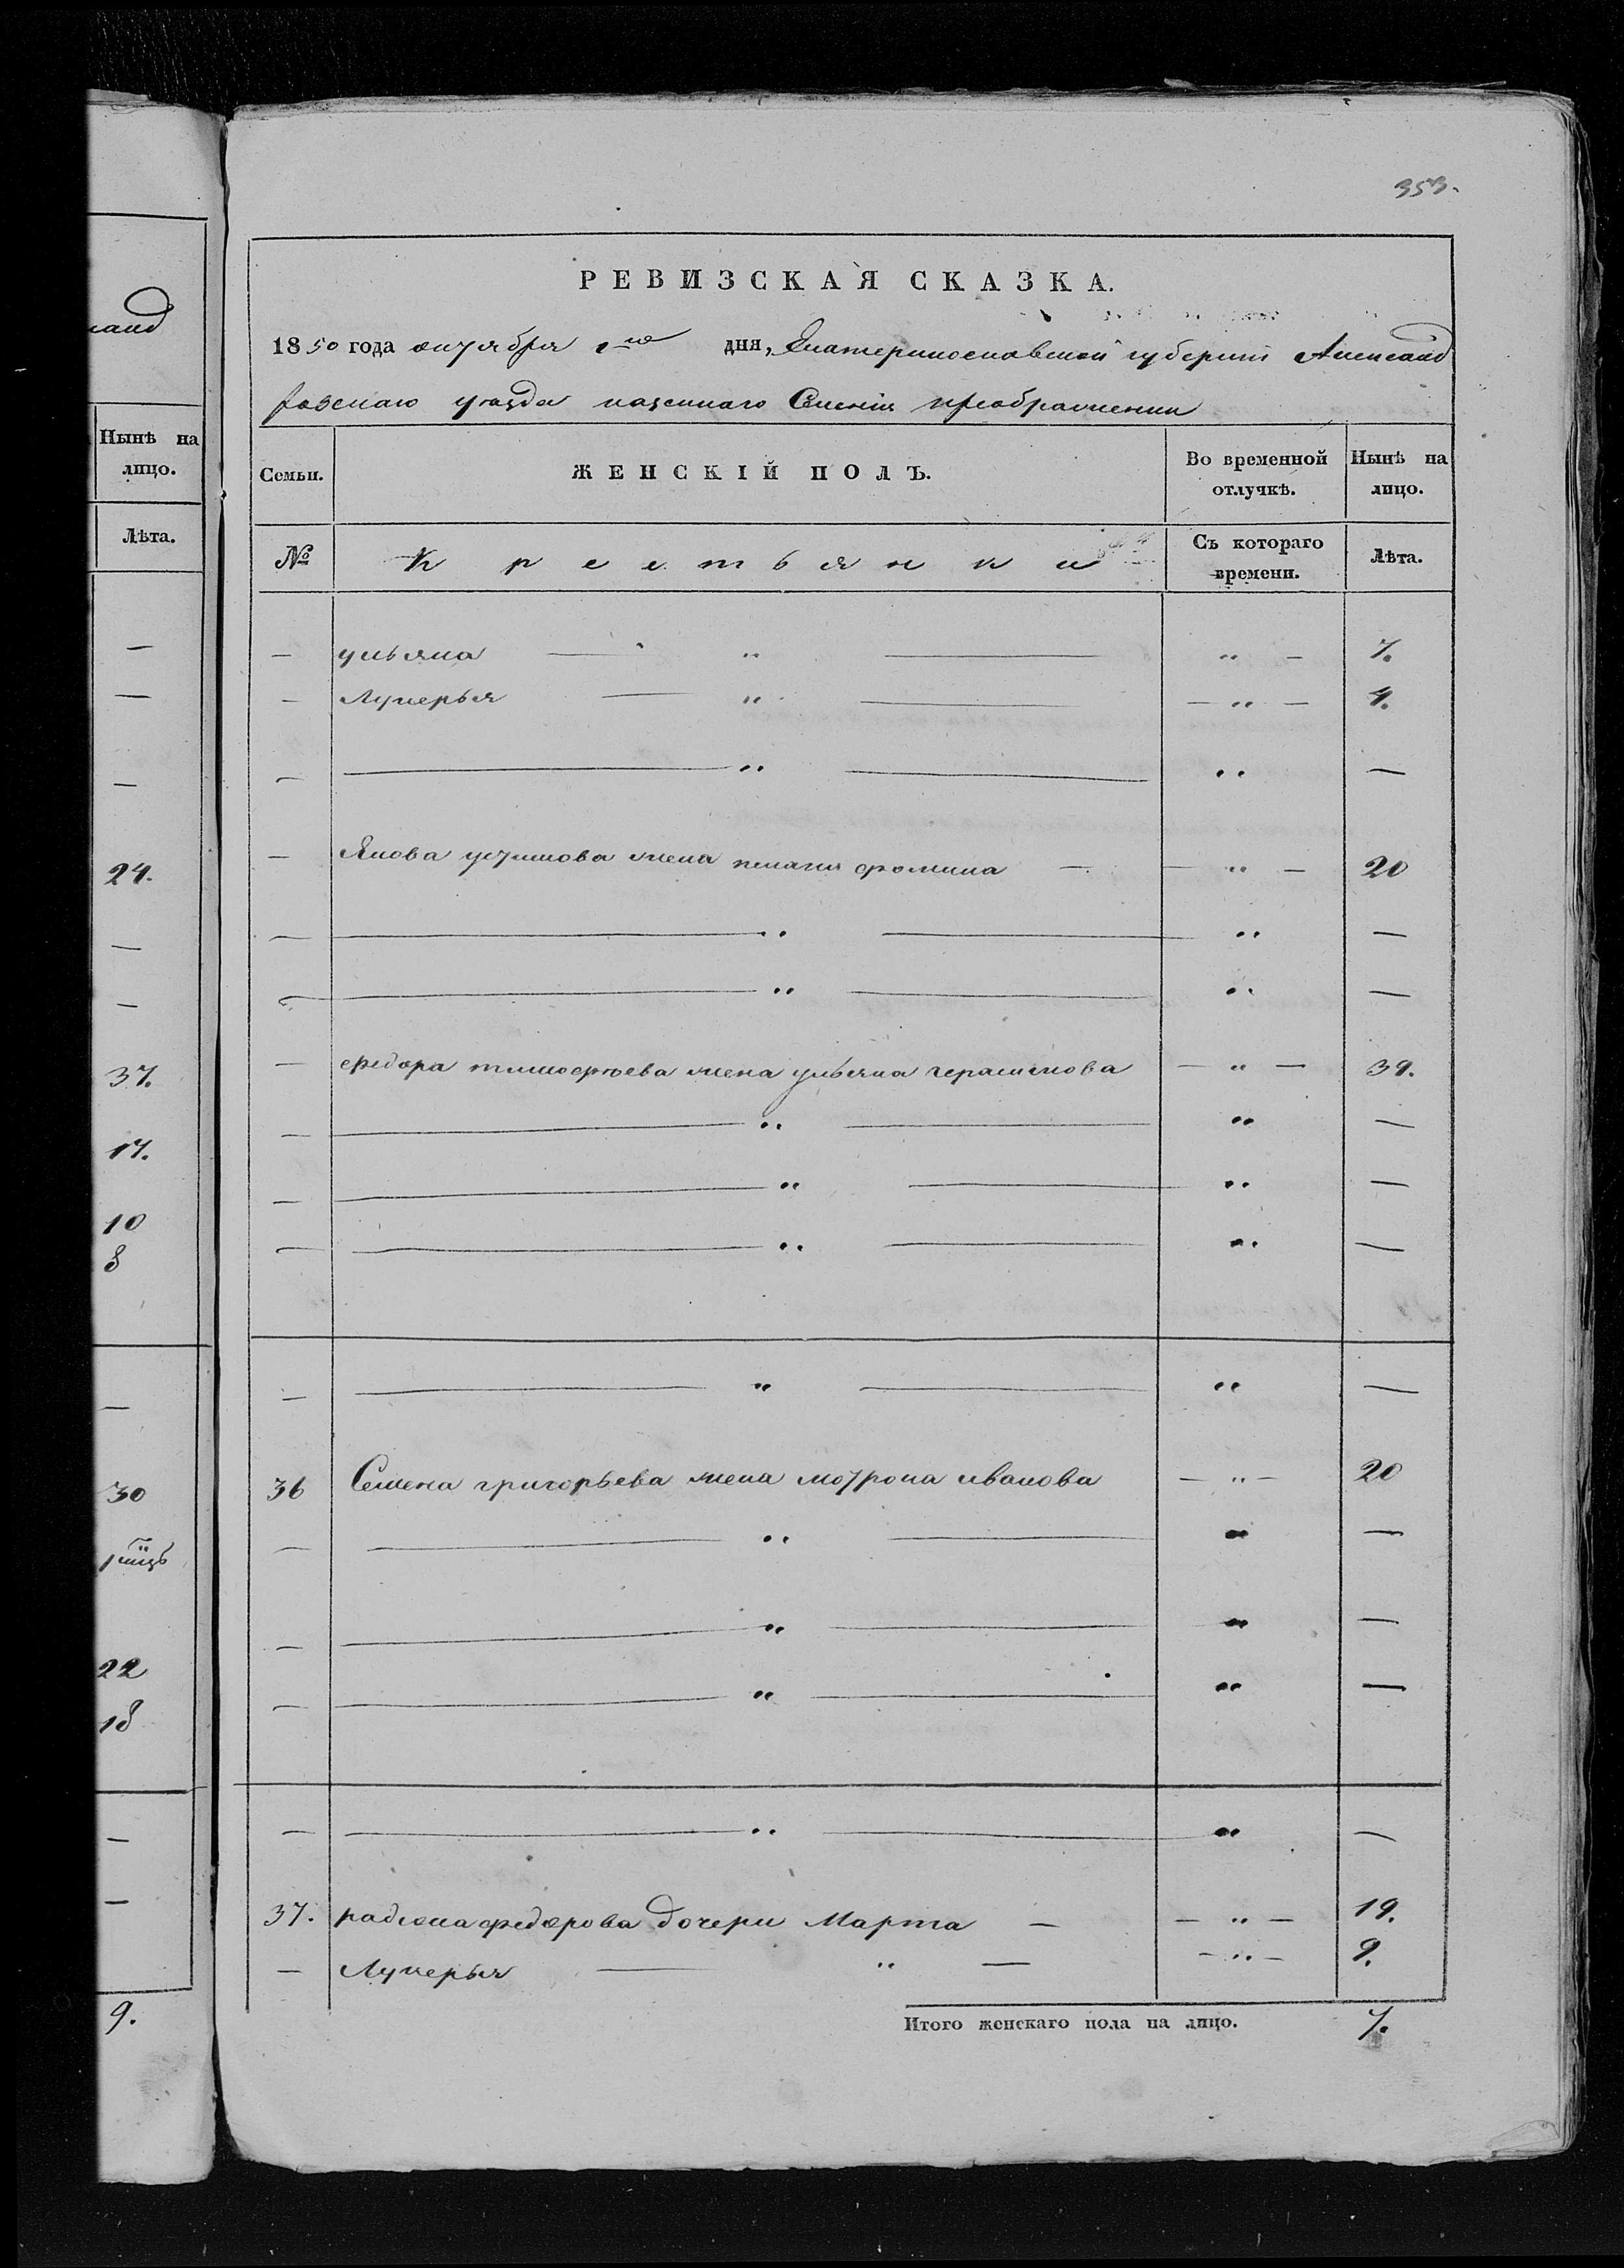 353.
РЕВИЗСКАЯ СКАЗКА.
1850 года октября 1го дня, Екатеринославской губернии Александ
ровскаго уезда казеннаго Селенія преображенки
Семьи. ЖЕНСКІЙ ПОЛЪ. Во временной отлучкѣ. Нынѣ на лицо.
№ Крестьянки Съ котораго времени. Лѣта.
— ульяна — „ — „ — 7.
— Лукерья — „ — — „ — 4.
— — „ — „ —
— Якова устинова жена пелагия фомина — — „ — 20
— — „ — „ —
— — „ — „ —
— федора тимофеева жена ульяна герасимова — „ — 39.
— — „ — „ —
— — „ — „ —
— — „ — „ —
— — „ — „ —
36 Семена григорьева жена мотрона иванова — „ — 20
— — „ — „ —
— — „ — „ —
— — „ — „ —
— — „ — „ —
37. радиона федорова дочери Марта — — „ — 19.
— Лукерья — „ — — „ — 9.
Итого женскаго пола на лицо. 7.
санд
Нынѣ на
лицо.
Лѣта.
—
—
—
24.
—
—
37.
17.
10
8
—
30
22
18
—
—
9.